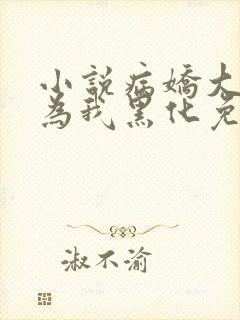 小說病嬌大
為我黑化免
淑不渝